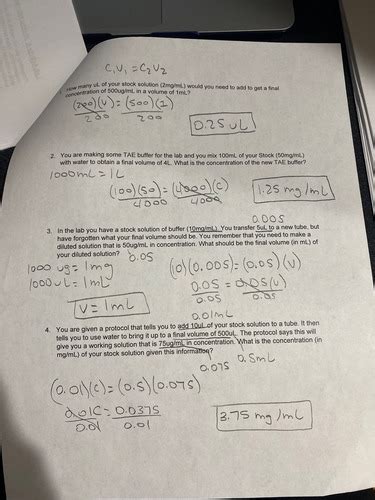 C₁V₁ = C₂V₂
How many uL of your stock solution (2mg/mL) would you need to add to get a final
concentration of 500ug/mL in a volume of 1mL?
(V) = (500)(1)
200 200
0.25 uL
2. You are making some TAE buffer for the lab and you mix 100mL of your Stock (50mg/mL)
with water to obtain a final volume of 4L. What is the concentration of the new TAE buffer?
1000mL = 1L
(100)(50) = (4000)(C)
4000 4000
1.25 mg/mL
0.005
3. In the lab you have a stock solution of buffer (10mg/mL). You transfer 5uL to a new tube, but
have forgotten what your final volume should be. You remember that you need to make a
diluted solution that is 50ug/mL in concentration. What should be the final volume (in mL) of
your diluted solution? 0.05
1000 ug = 1mg
(10)(0.005) = (0.05)(V)
1000 uL = 1mL
0.05 = 0.05(V)
0.05 0.05
V = 1mL
0.01mL
4. You are given a protocol that tells you to add 10uL of your stock solution to a tube. It then
tells you to use water to bring it up to a final volume of 500uL. The protocol says this will
give you a working solution that is 75ug/mL in concentration. What is the concentration (in
mg/mL) of your stock solution given this information?
0.075 0.5mL
(0.01)(C) = (0.5)(0.075)
0.01C = 0.0375
0.01 0.01
3.75 mg/mL